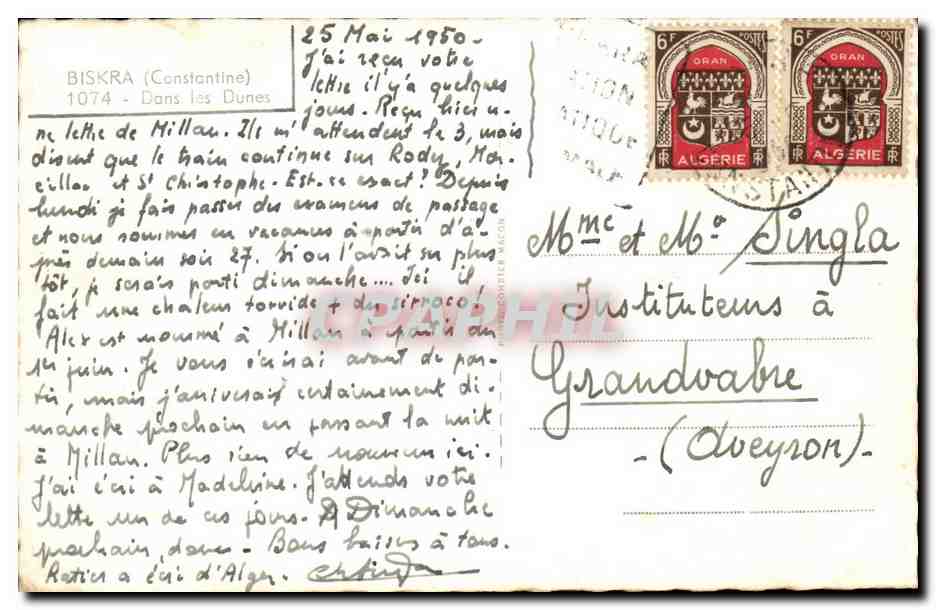 BISKRA (Constantine)
1074 - Dans les Dunes
25 Mai 1950-
J'ai reçu votre
lettre il y a quelques
jours. Reçu hier u-
ne lettre de Millau. Ils m'attendent le 3, mais
disent que le train continue sur Rodez, Mar-
cillac et St Christophe. Est-ce exact? Depuis
lundi je fais passer des examens de passage
et nous sommes en vacances à partir d'a-
près demain soir 27. Si on l'avait su plus
tôt, je serais parti dimanche.... Ici il
fait une chaleur torride + du sirroco!
Alex est nommé à Millau à partir du
1er juin. Je vous écrirai avant de par-
tir, mais j'arriverai certainement di-
manche prochain en passant la nuit
à Millau. Plus rien de nouveau ici.
J'ai écri à Madeleine. J'attends votre
lettre un de ces jours. A Dimanche
prochain, donc. Bons baisers à tous.
Ratier a écri d'Alger.
6F POSTES
ORAN
RF ALGÉRIE RF
6F POSTES
ORAN
RF ALGÉRIE RF
Mme et Mr Singla
Instituteurs à
Grandvabre
-(Aveyron)-
CPAPHIL